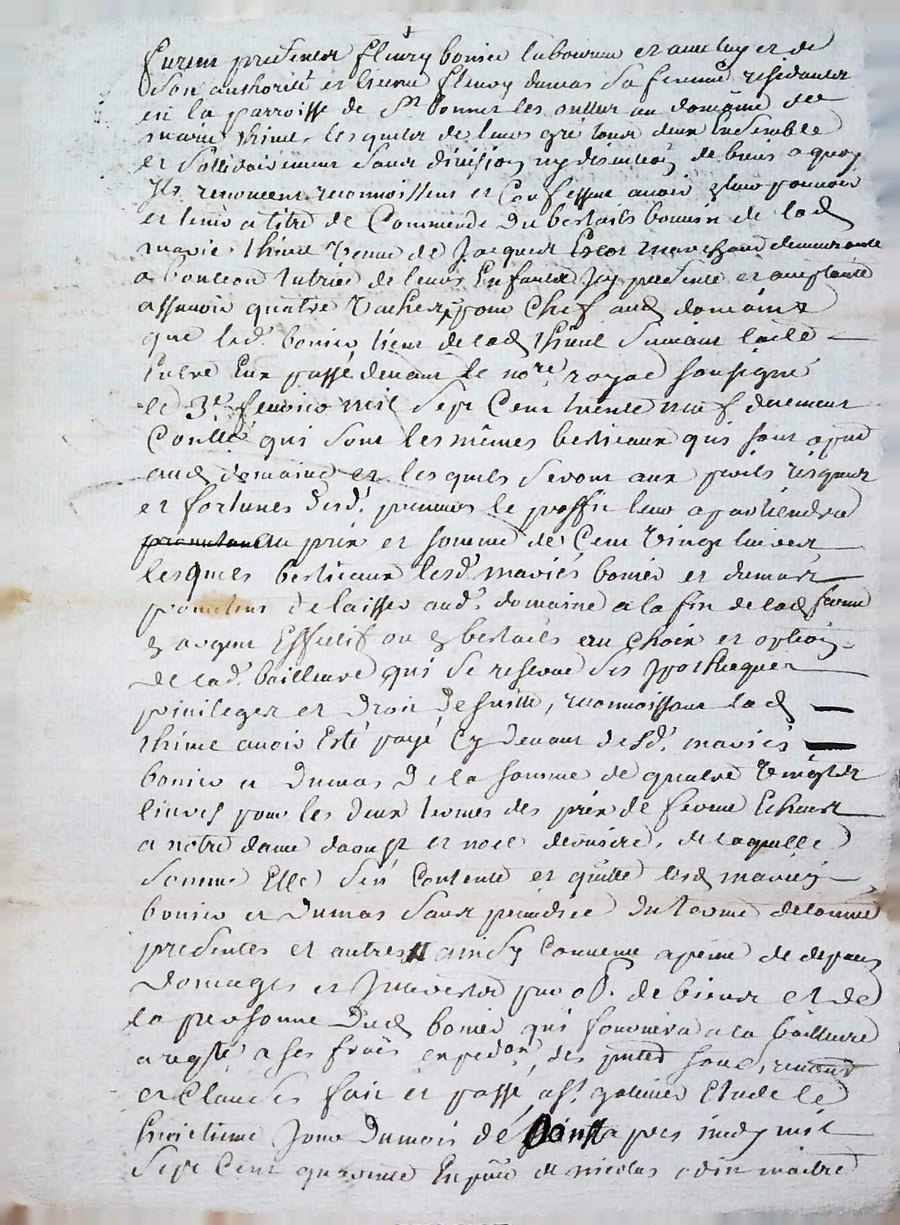 furent presents fleury bonier laboureur et avec luy et de
son authorité et licence fleury dumas sa femme residants
en la parroisse de St bonnet les au domaine de
marie thime, lesquels de leurs gré tous deux Ensemble
et sollidairement sans division ny discution de biens a quoy
Ils renoncent reconnoissent et Confessent avoir en leur pouvoir
et tenir a titre de Commende du bestails bouvin de lad
marie thime veuve de Jacques Escot marchand demeurante
a tutrice de leurs Enfants Icy presente et acceptante
assavoir quatre Vaches pour Chef aud domaine
que led. bonier tient de lad thime suivant lacte
Entre Eux passé devant le nore royal soussigné
le 3e fevrier mil sept Cent trente neuf duement
Contlé qui sont les mêmes bestieaux qui sont apnt
aud domaine et lesquels seront aux perils risques
et fortunes desd. preneurs le proffit leur apartiendra
au prix et somme de Cent vingt livres
lesquels bestieaux lesd. mariés bonier et dumas
promettent delaisser aud. domaine a la fin de lad ferme
en argent Effectif ou en bestails au choix et option
de lad. bailleure qui se reserve ses ypotheques
privileges et droit de suitte, reconnoissant lad
thime avoir Esté payé Cy devant desd. mariés
bonier et dumas de la somme de quatre vingts
livres pour les deux termes des prix de ferme Echeus
a notre dame daoust et noel derniers, de laquelle
somme Elle sen Contente et quitte lesd mariés
bonier et dumas sans prejudice du terme de lannée
presentes et autres ainsy Convenu a peine de depans
domages et Interests par obl. de biens et de
la personne dud bonier qui fournira a la bailleure
a regté a ses frais expedon des pntes sous, renont
et Clauses fait et passé a St galmier Etude le
huitieme Jour du mois de apres midy mil
sept Cent quarante En pnce de nicolas odin maitre